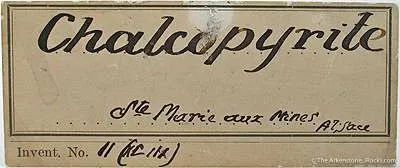 Chalcopyrite
Ste Marie aux Mines Alsace
Invent. No. 11 (KC 11x)
© The Arkenstone, iRocks.com